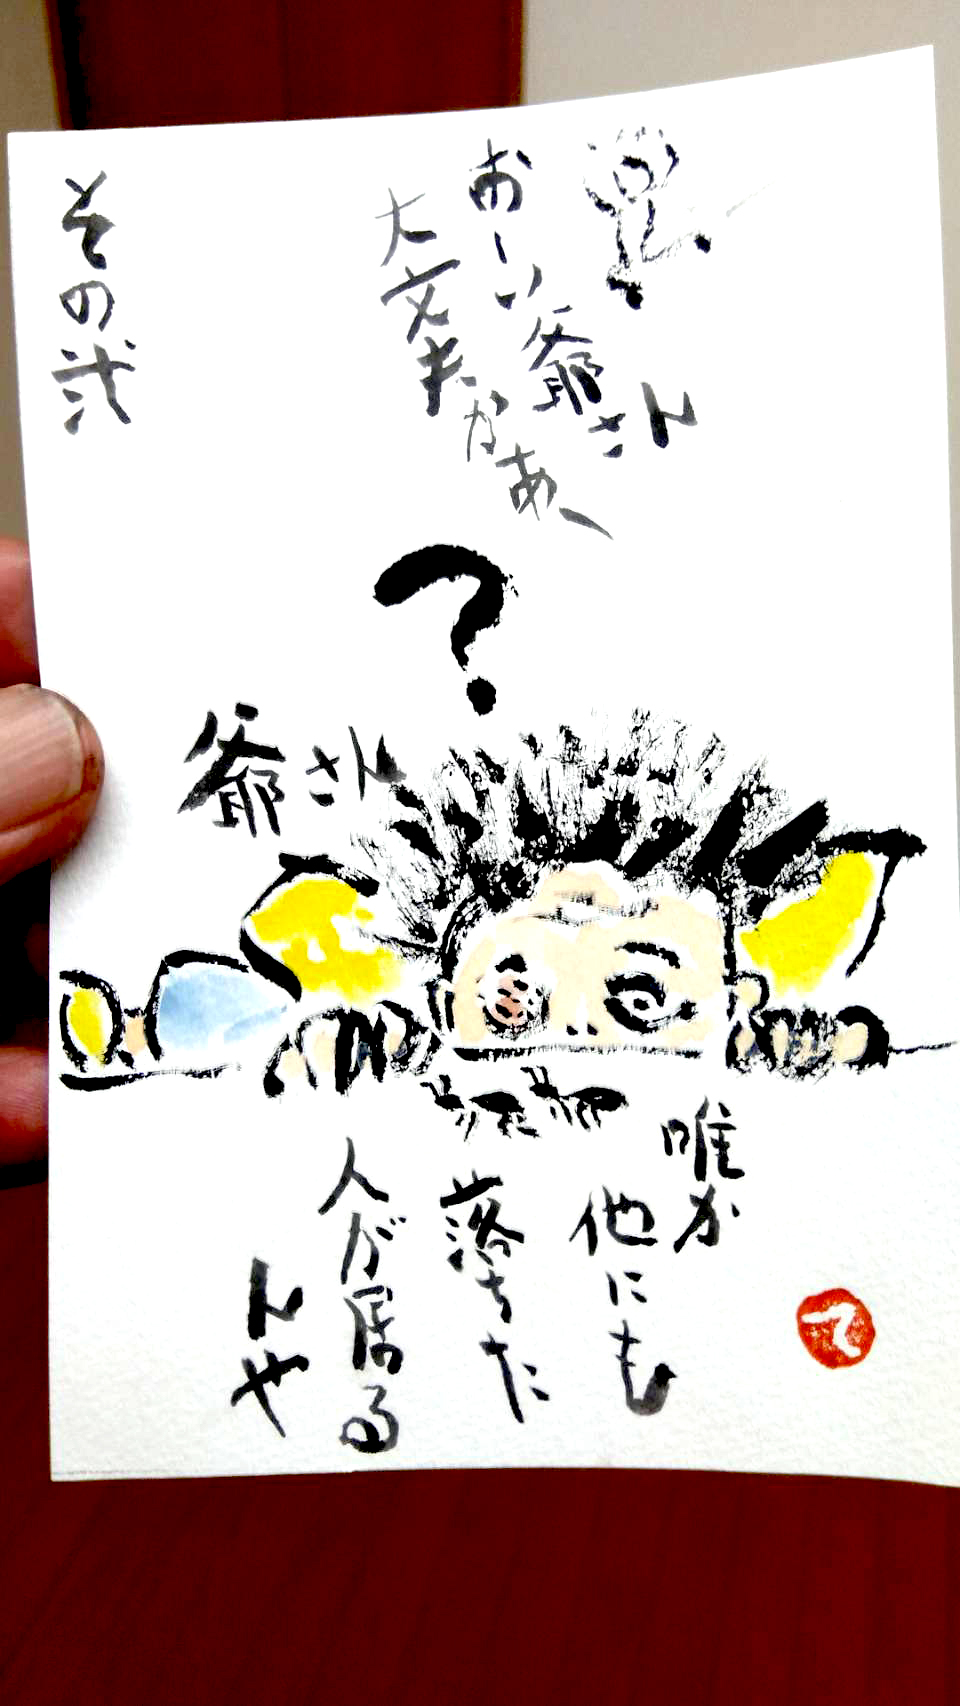 おーい爺さん
大丈夫かあ
?
爺さん
唯か
他にも
落ちた
人が居る
んや
その弐
て